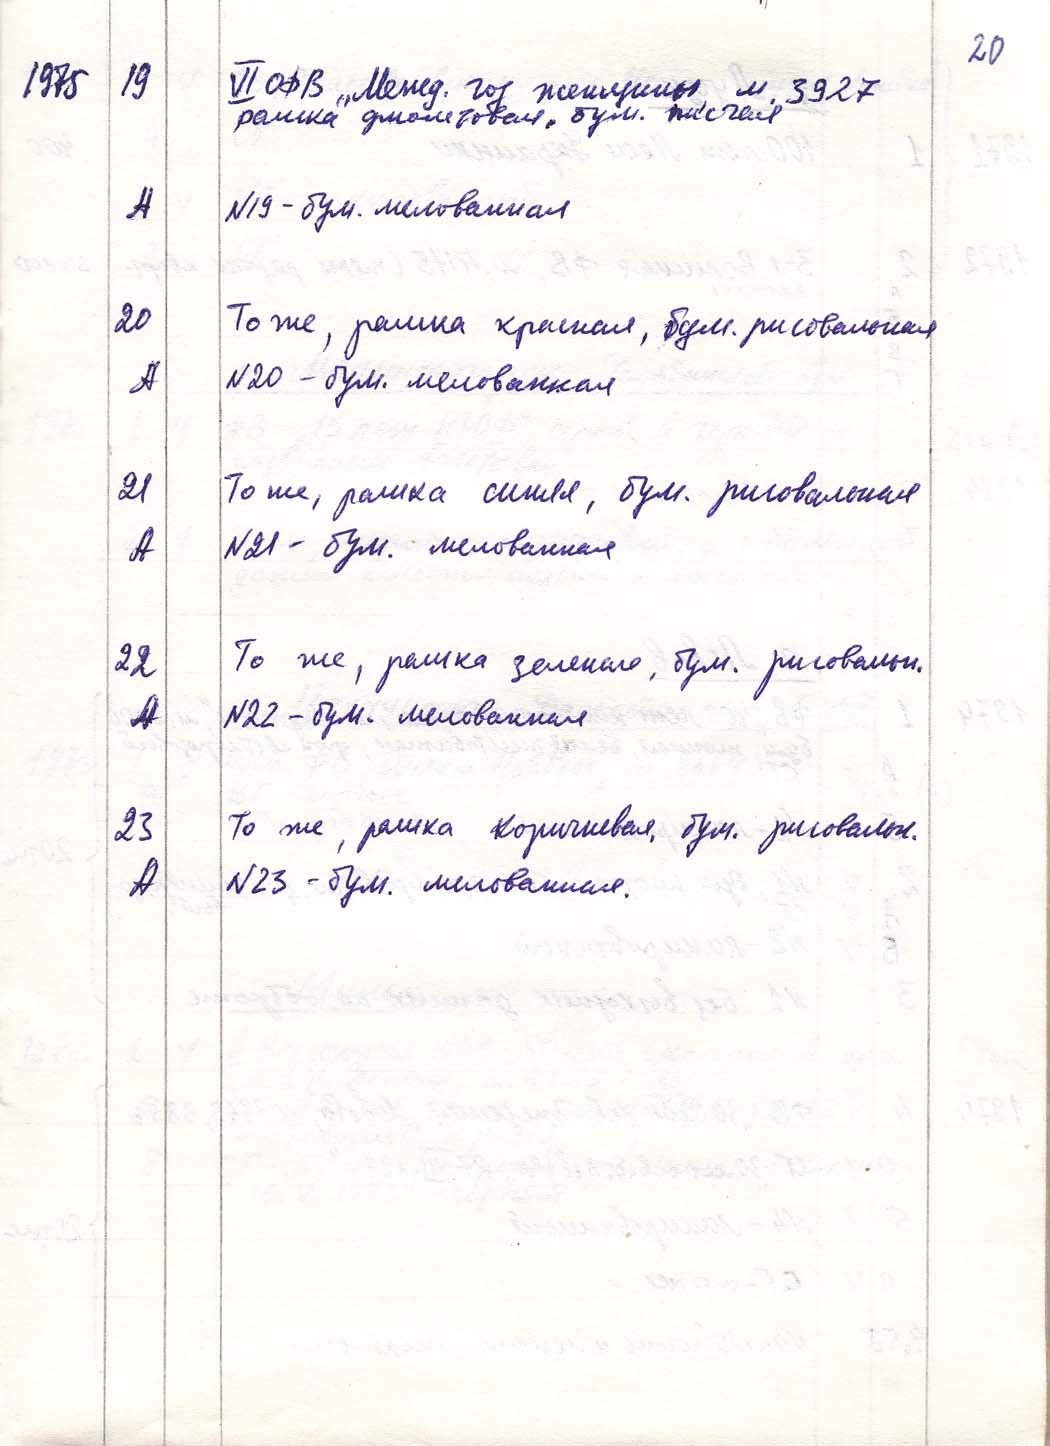 20
1975 19 VI ОФВ „Межд. год женщины м. 3927
рамка фиолетовая, бум. писчая
А №19 - бум. мелованная
20 То же, рамка красная, бум. рисовальная
А №20 - бум. мелованная
21 То же, рамка синяя, бум. рисовальная
А №21 - бум. мелованная
22 То же, рамка зеленая, бум. рисовальн.
А №22 - бум. мелованная
23 То же, рамка коричневая, бум. рисовальн.
А №23 - бум. мелованная.